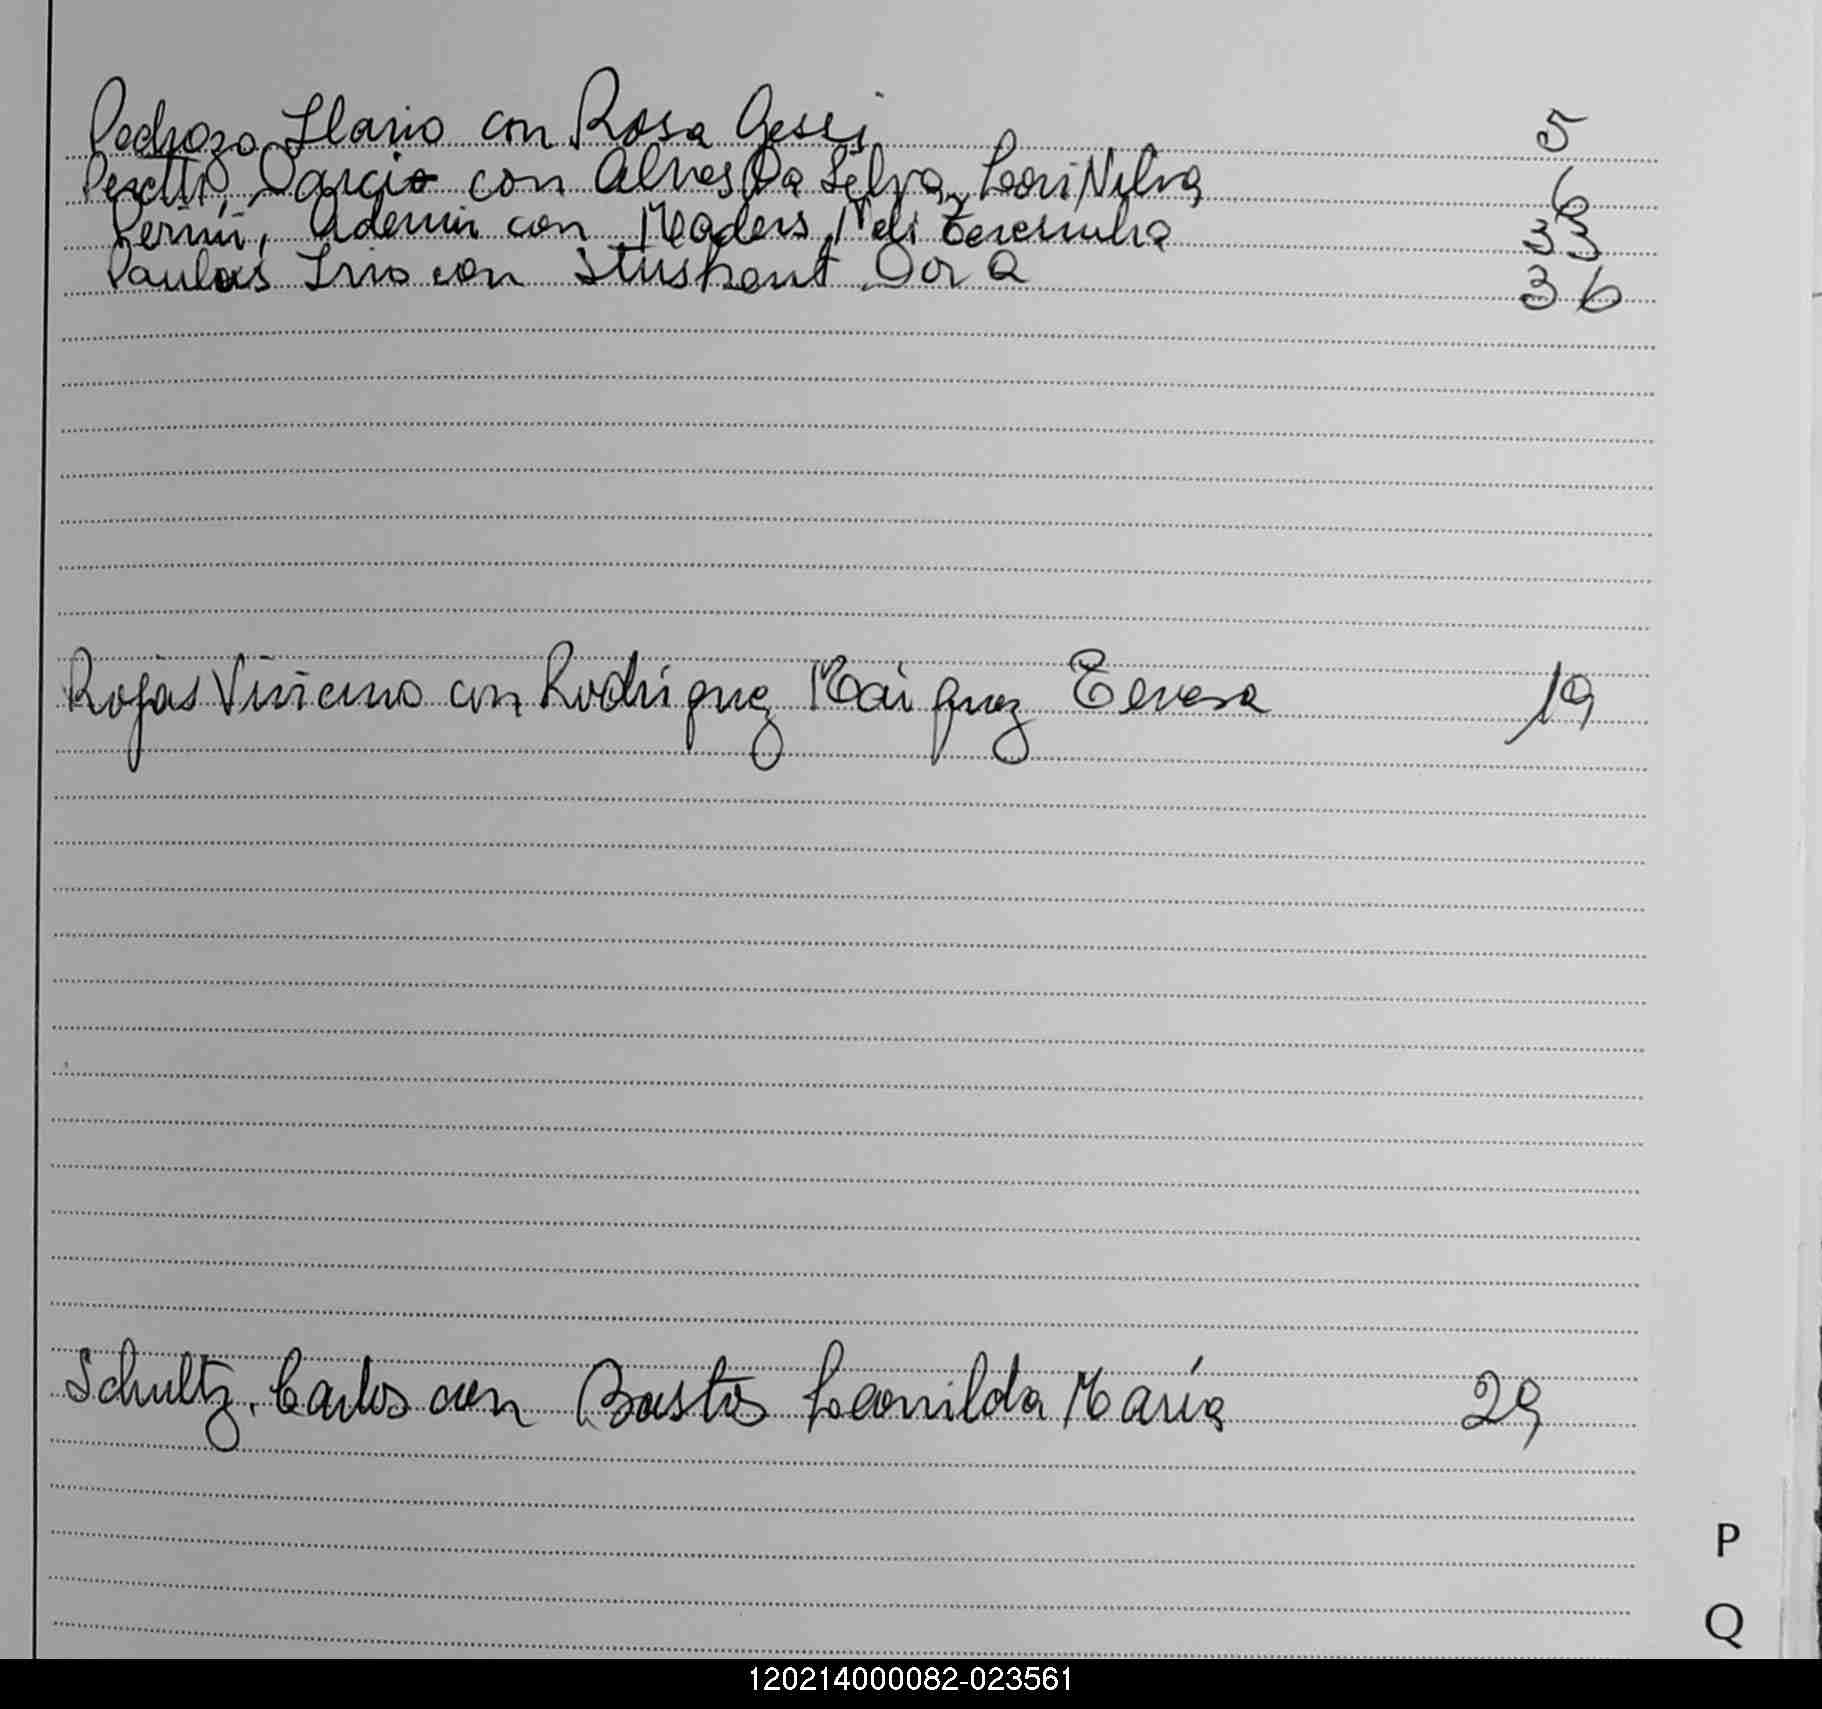 Pedrozo Ilario con Rosa Gessi 5
Peretti, Darcio con Alves Da Silva, Leori Nelva 6
Perini, Ademir con Maders, Neli Teresinha 33
Paulus Irio con Dora 36
Rojas Viviano con Rodriguez Maiquez Teresa 19
Schultz, Carlos con Bastos Leonilda María 29
P
Q
120214000082-023561